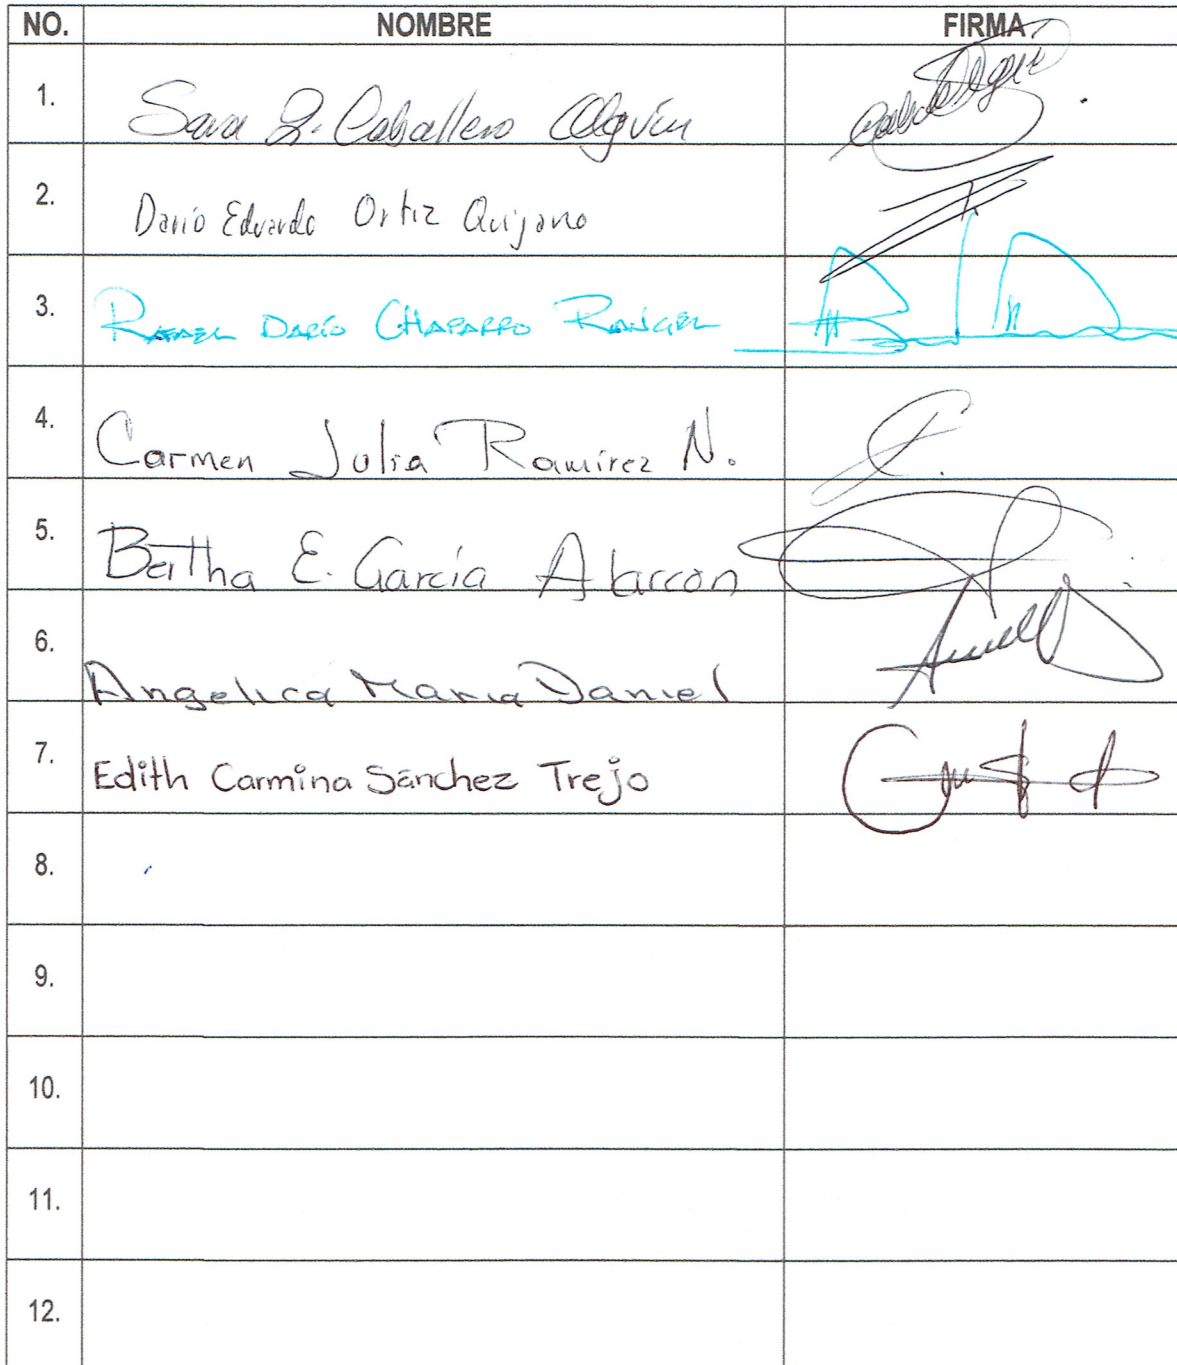 NO. NOMBRE FIRMA
1. Sara L. Caballero Olguín
2. Darío Eduardo Ortiz Quijano
3. RAFAEL DARÍO CHAPARRO RANGEL
4. Carmen Julia Ramírez N.
5. Bertha E. García Alarcon
6. Angelica Maria Daniel
7. Edith Carmina Sánchez Trejo
8.
9.
10.
11.
12.